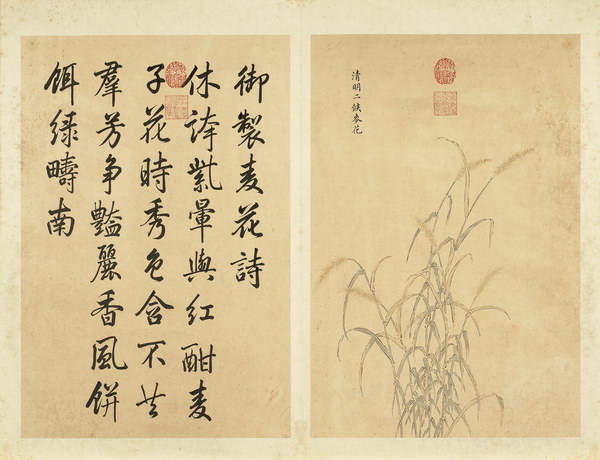 清明二候麥花
御製麦花詩
休誇紫暈與紅酣麦
子花時秀色含不共
羣芳争豔麗香風餅
餌緑疇南